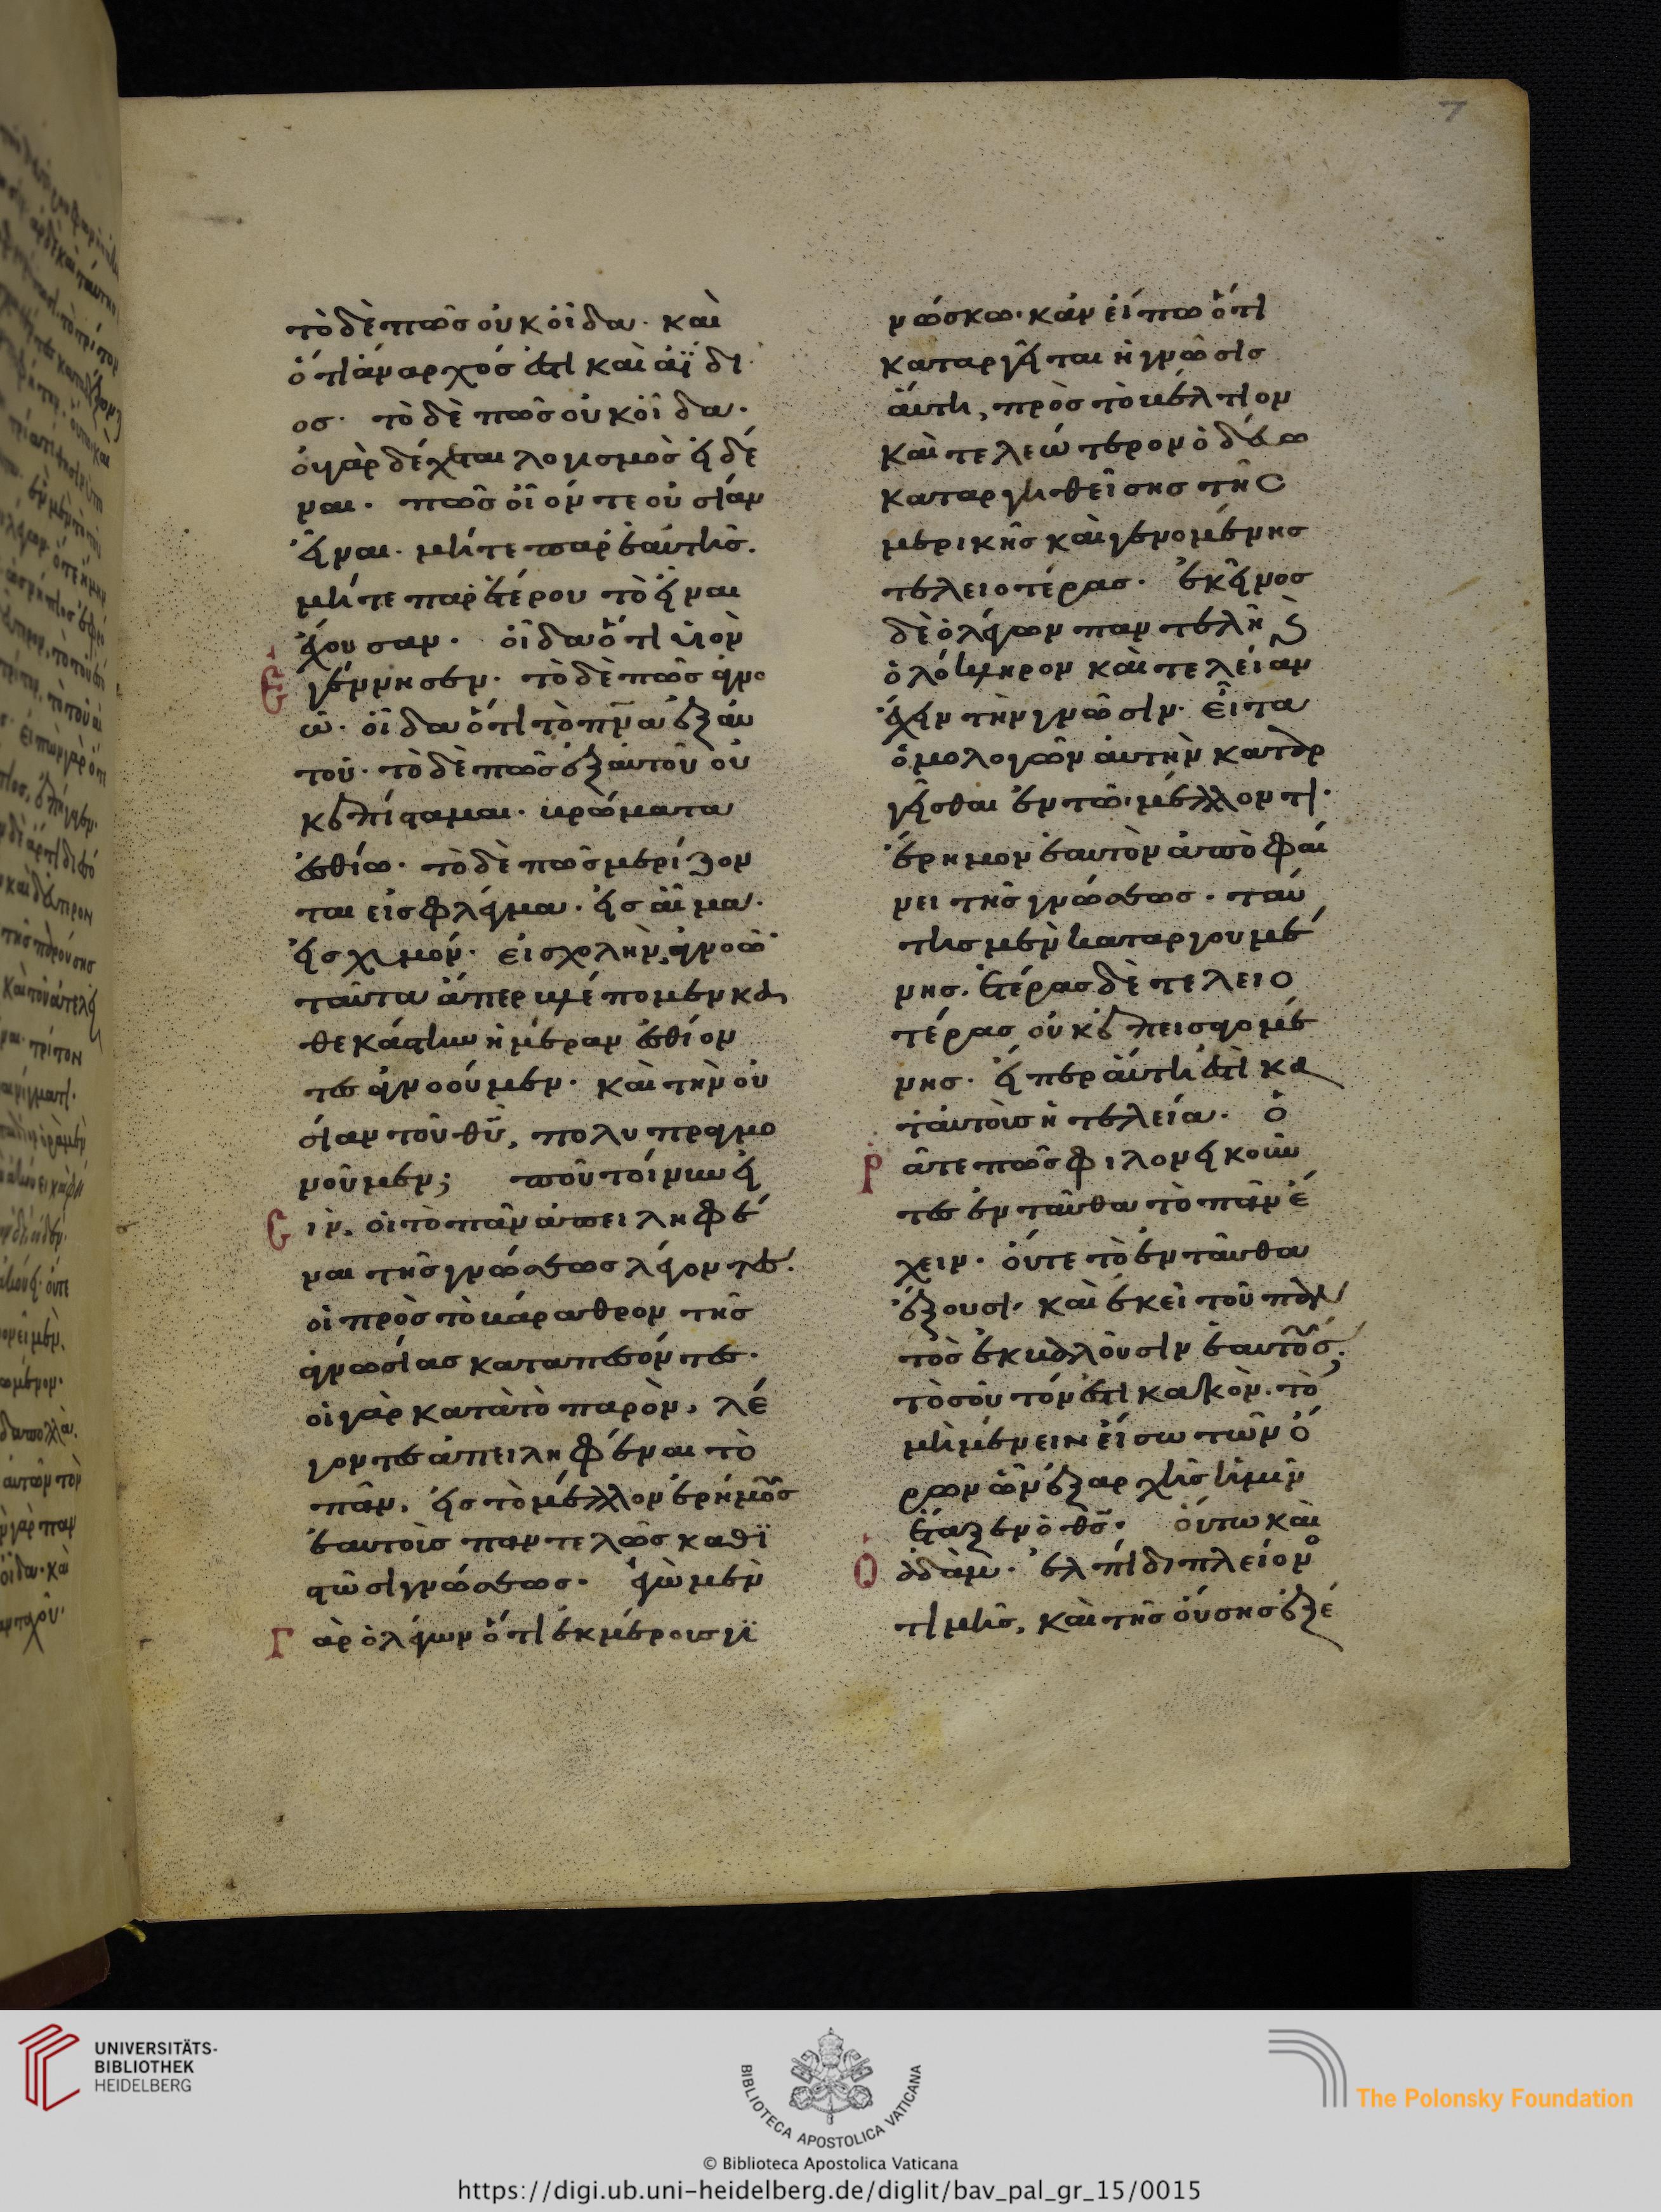 7
τὸ δὲ πῶς οὐκ οἶδα· καὶ
ὅτι ἄναρχός ἐστι καὶ ἀΐδι
ος· τὸ δὲ πῶς οὐκ οἶδα·
οὐ γὰρ δέχεται λογισμὸς εἰδέ
ναι· πῶς οἷόν τε οὐσίαν
εἶναι· μήτε παρ' ἑαυτῆς.
μήτε παρ' ἑτέρου τὸ εἶναι
ἔχουσαν· οἶδα ὅτι υἱὸν
ἐγέννησεν· τὸ δὲ πῶς ἀγνο
ῶ· οἶδα ὅτι τὸ πνα ἐξ αυ
τοῦ· τὸ δὲ πῶς ἐξ αυτοῦ οὐ
κ ἐπίσταμαι· βρώματα
ἐσθίω· τὸ δὲ πῶς μερίζον
ται εἰς φλέγμα· εἰς αἷμα·
εἰς χυμόν· εἰς χολὴν, ἀγνοῶ·
ταῦτα ἅπερ βλέπομεν κα
θ' εκάστην ἡμέραν ἐσθίον
τες ἀγνοοῦμεν· καὶ τὴν οὐ
σίαν τοῦ θυ, πολυπραγμο
νοῦμεν; ποῦ τοίνυν εἰ
σὶν, οἱ τὸ πᾶν ἀπειληφέ
ναι τῆς γνώσεως λέγοντες.
οἱ πρὸς τὸ βάραθρον τῆς
ἀγνωσίας καταπεσόντες·
οἱ γὰρ κατὰ τὸ παρὸν, λέ
γοντες ἀπειληφέναι τὸ
πᾶν, εἰς τὸ μέλλον ἐρήμους
ἑαυτοὺς παντελῶς καθϊ
στῶσι γνώσεως· ἐγὼ μὲν
γὰρ ὁ λέγων ὅτι ἐκ μέρους γϊ
νώσκω· κἂν εἴπω ὅτι
καταργεῖται ἡ γνῶσις
αὕτη, πρὸς τὸ βέλτιον
καὶ τελεώτερον ὁδεύω
καταργηθείσης τῆς
μερικῆς καὶ γενομένης
τελειοτέρας· ἐκεῖνος
δὲ ὁ λέγων παντελῆ καὶ
ὁλόκληρον καὶ τελείαν
ἔχειν τὴν γνῶσιν· εἶτα
ὁμολογῶν αὐτὴν καταρ
γεῖσθαι ἐν τῶ μέλλοντι·
ἔρημον ἑαυτὸν ἀποφαί
νει τῆς γνώσεως· ταύ
της μὲν καταργουμέ
νης. ἑτέρας δὲ τελειο
τέρας οὐκ ἐπεισαγομέ
νης· εἴπερ αὕτη ἐστὶ κα
τ' αὐτοὺς ἡ τελεία· ὁ
ρᾶτε πῶς φιλονεικοῦν
τες ἐνταῦθα τὸ πᾶν ἔ
χειν· οὔτε τὸ ἐνταῦθα
ἕξουσι, καὶ ἐκεῖ τοῦ παν
τὸς ἐκβάλουσιν ἑαυτούς;
τοσοῦτόν ἐστι κακὸν. τὸ
μὴ μένειν εἴσω τῶν ὅ
ρων ὧν ἐξαρχῆς ἡμῖν
ἔταξεν ὁ θς· οὕτω καὶ
ὁ ἀδὰμ· ἐλπίδι πλείονο
τιμῆς, καὶ τῆς οὔσης ἐξέ
UNIVERSITÄTS-
BIBLIOTHEK
HEIDELBERG
BIBLIOTECA APOSTOLICA VATICANA
The Polonsky Foundation
© Biblioteca Apostolica Vaticana
https://digi.ub.uni-heidelberg.de/diglit/bav_pal_gr_15/0015